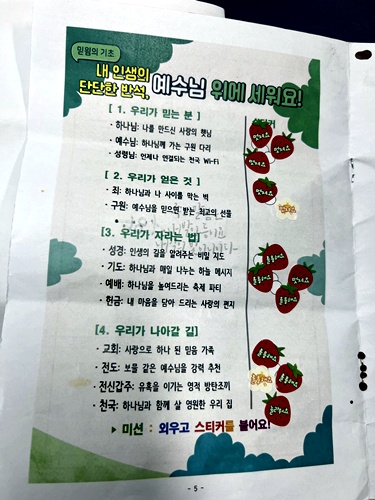 믿음의 기초
내 인생의
단단한 반석, 예수님 위에 세워요!
[ 1. 우리가 믿는 분 ]
• 하나님: 나를 만드신 사랑의 햇님
• 예수님: 하나님께 가는 구원 다리
• 성령님: 언제나 연결되는 천국 Wi-Fi
[ 2. 우리가 얻은 것 ]
• 죄: 하나님과 나 사이를 막는 벽
• 구원: 예수님을 믿으면 받는 최고의 선물
[3. 우리가 자라는 법]
• 성경: 인생의 길을 알려주는 비밀 지도
• 기도: 하나님과 매일 나누는 하늘 메시지
• 예배: 하나님을 높여드리는 축제 파티
• 헌금: 내 마음을 담아 드리는 사랑의 편지
[4. 우리가 나아갈 길]
• 교회: 사랑으로 하나 된 믿음 가족
• 전도: 보물 같은 예수님을 강력 추천
• 전신갑주: 유혹을 이기는 영적 방탄조끼
• 천국: 하나님과 함께 살 영원한 우리 집
▶ 미션 : 외우고 스티커를 붙여요!
- 5 -